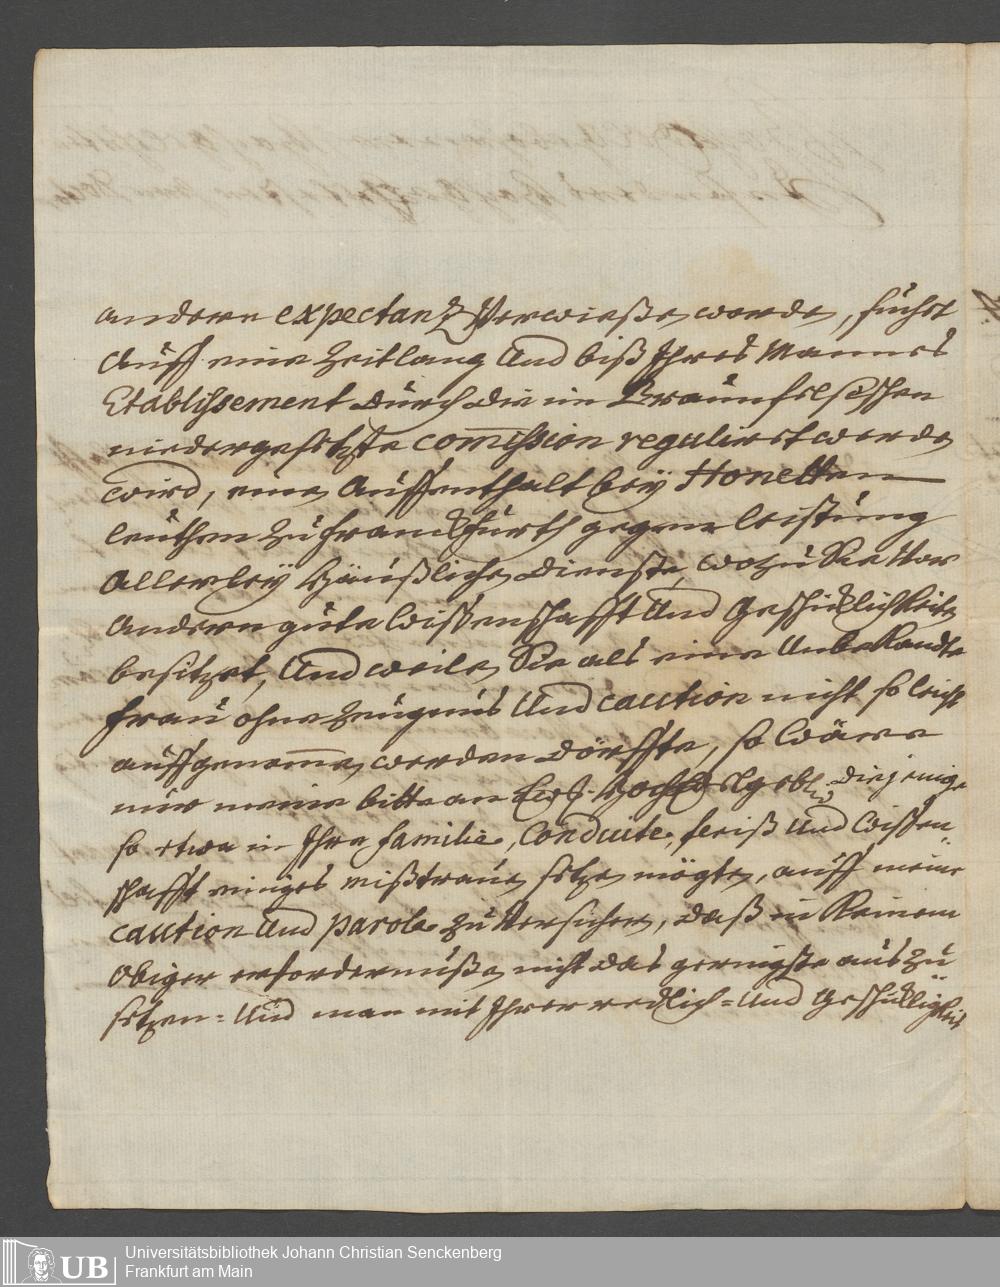 andern expectantz Verwießen werden, suchst
Auff eine Zeitlang Und biß Ihres Mannes
Etablissement durch die im Braunfelsischen
niedergesetzte commission reguliert werden
wird, einen Auffenthalt bey Honetten
leuthen zu franckfurth gegen leistung
Allerley häußlichen dienste, wozu Sie Vor
andern gute Wissenschafft Und Geschicklichkeiten
besitzet, Und weilen Sie als eine Unbekandte
frau ohne Zeugnus Und caution nicht so leicht
auffgenommen werden dörffte, so Wäre
nur meine bitte an Ew. HochEdelgebl. diejenige
so etwa in Ihre familie, Conduite, fleiß Und Wissen-
schafft einiges mißtrauen setzen mögten, auff meine
caution Und parole zu Versichern, daß in Keinem
Obiger erfordernußen nicht das geringste auszu-
setzen= Und man mit Ihrer redlich= Und Geschickligkeit
Universitätsbibliothek Johann Christian Senckenberg
Frankfurt am Main
UB